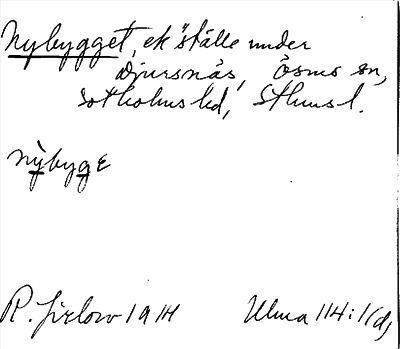 Nybygget, ek "ställe under
Djursnäs, Ösmo sn,
Sotholms hd, Sthms l.
nybygε
R. Jirlow 1914 Ulma 114:1(d)